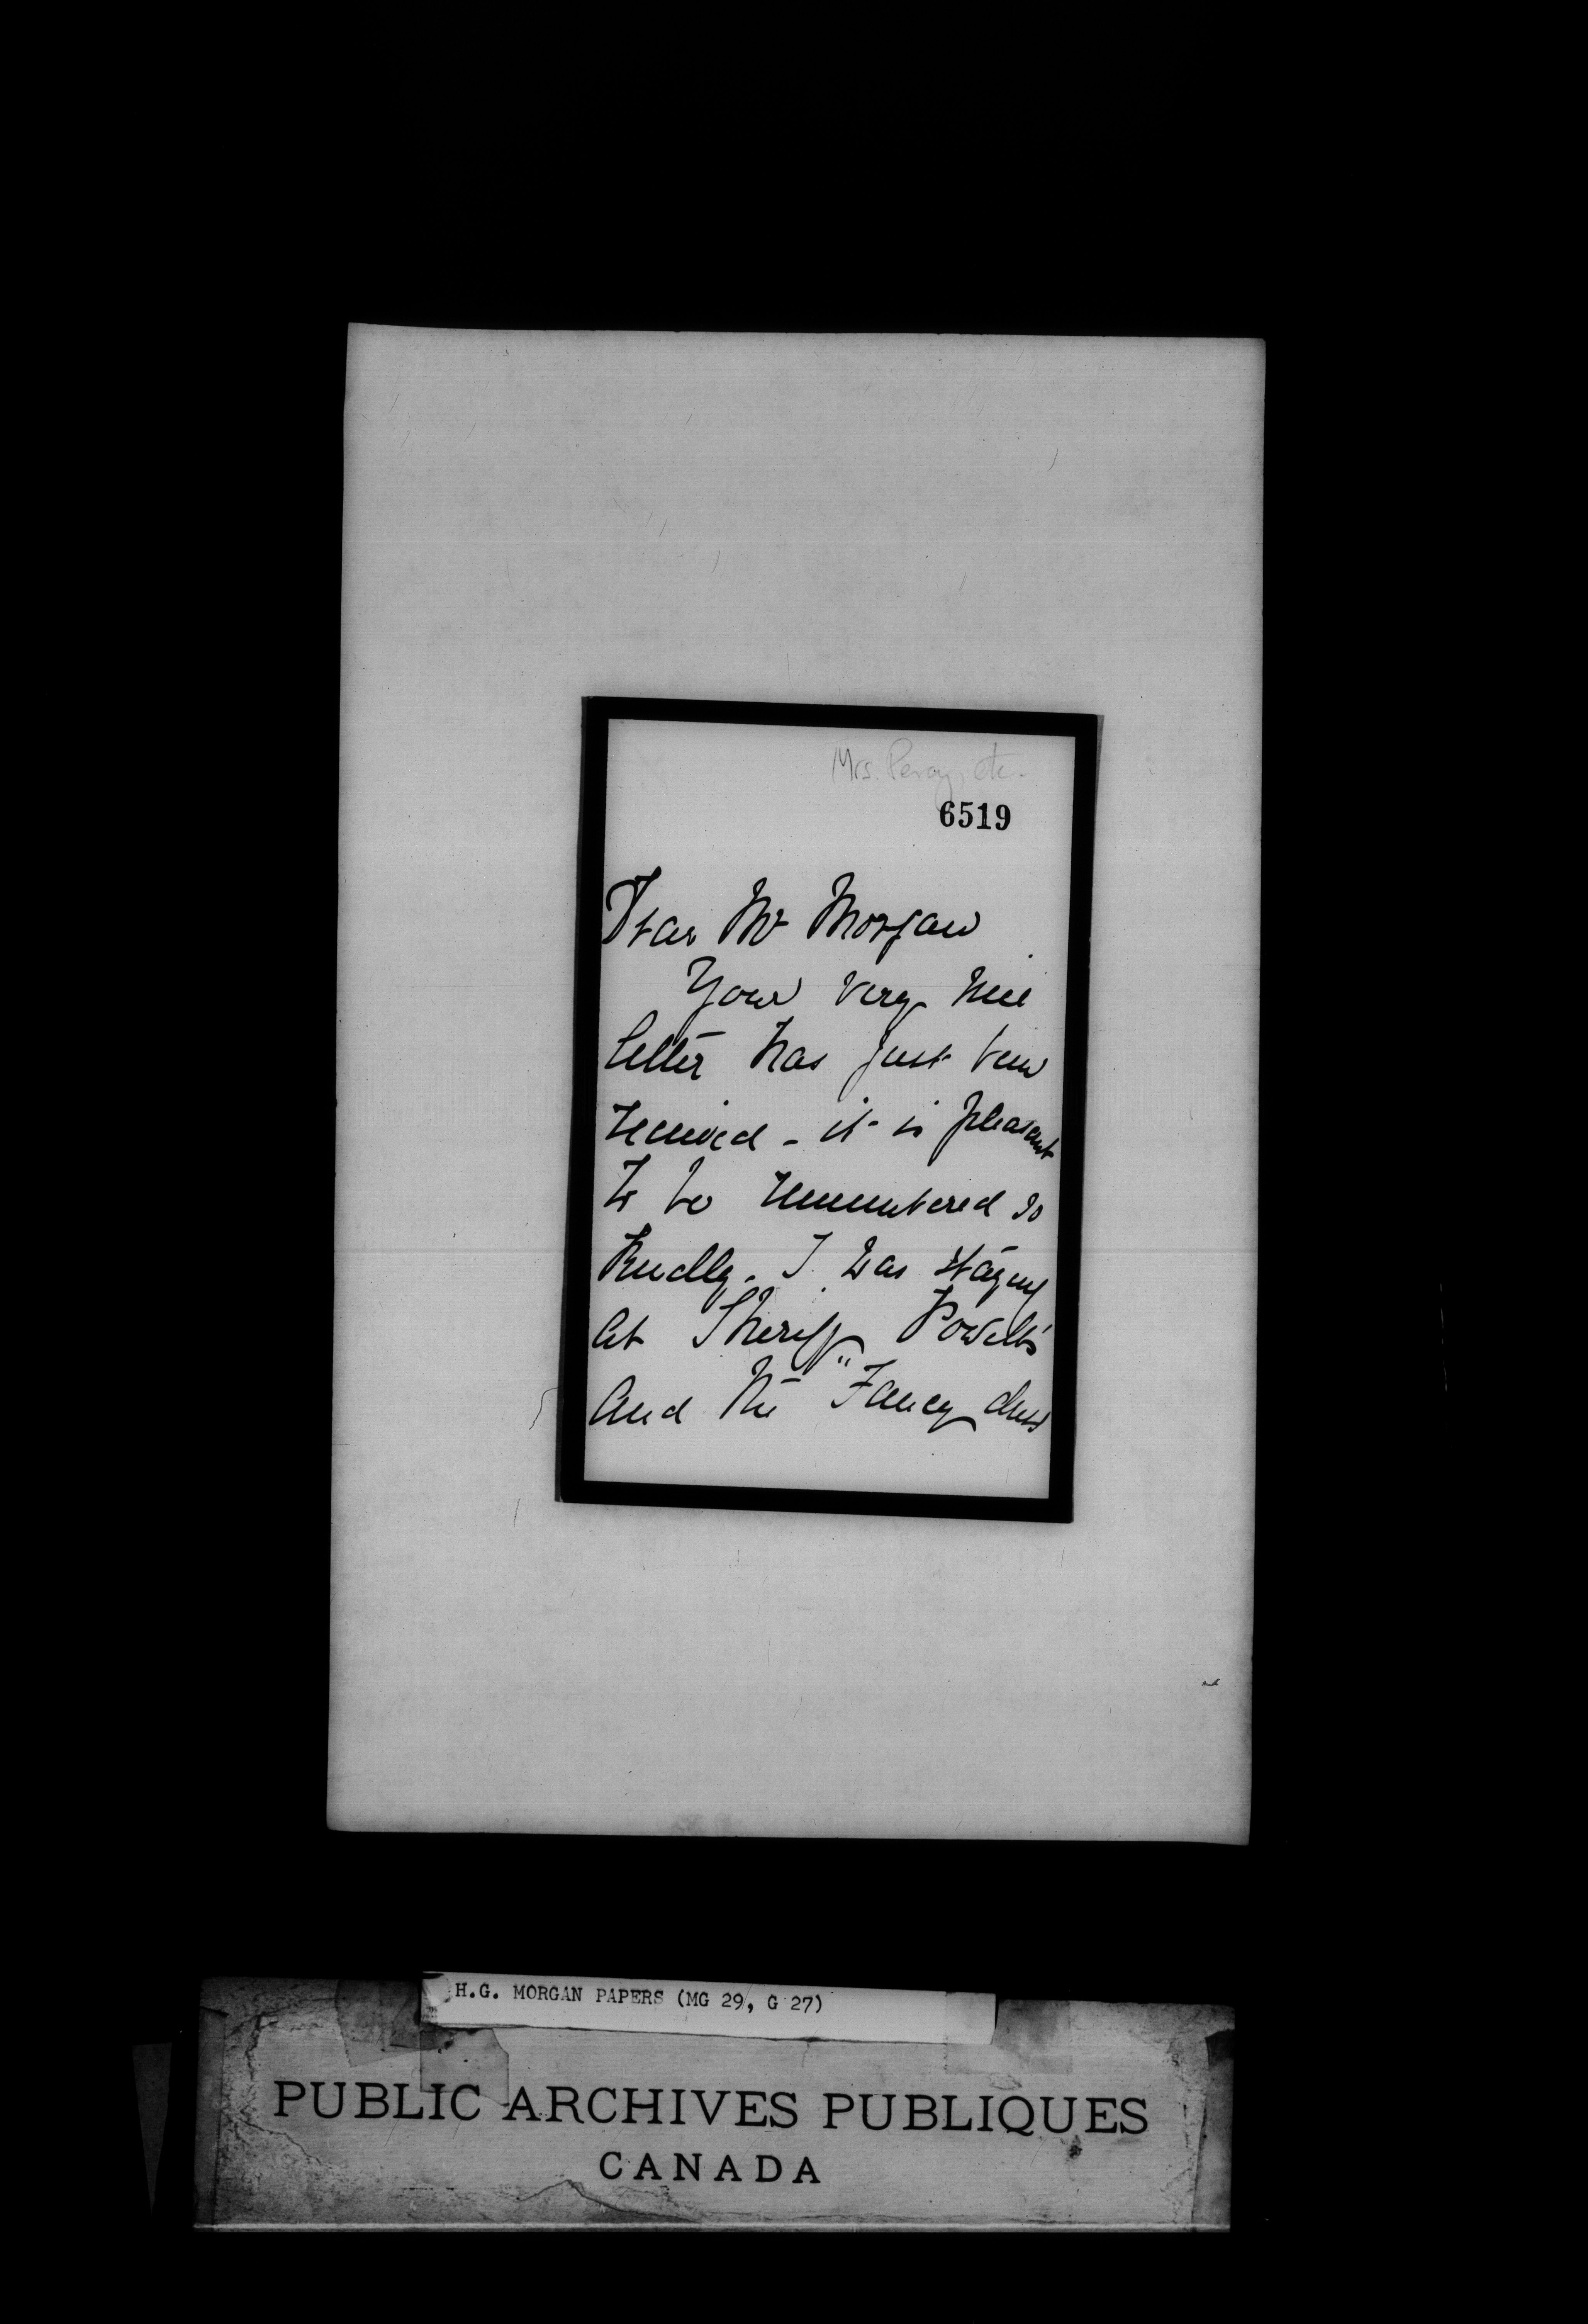 Mrs. Percy, etc.
6519
Dear Mr Morgan
Your very nice
letter has just been
received - it is pleasant
to be remembered so
kindly. I was staying
at Sheriff Powell's
and the "Fancy dress
H.G. MORGAN PAPERS (MG 29, G 27)
PUBLIC ARCHIVES PUBLIQUES
CANADA